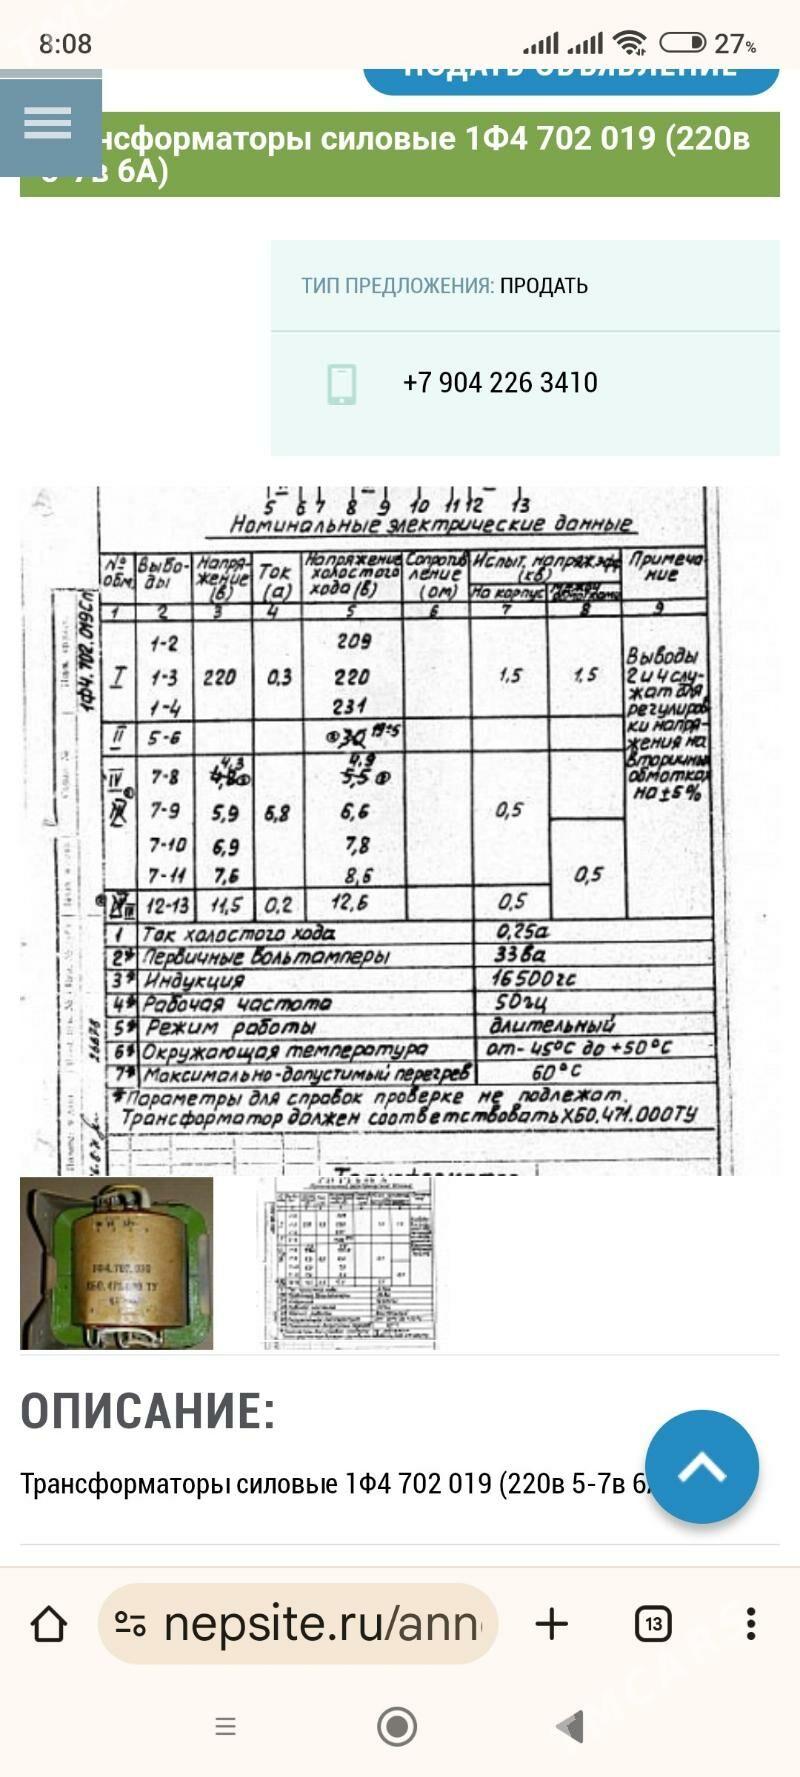 8:08
27%
ПОДАТЬ ОБЪЯВЛЕНИЕ
нсформаторы силовые 1Ф4 702 019 (220в
7в 6А)
ТИП ПРЕДЛОЖЕНИЯ: ПРОДАТЬ
+7 904 226 3410
5 6 7 8 9 10 11 12 13
Номинальные электрические данные
№ обм. Выводы Напряжение (в) Ток (а) Напряжение холостого хода (в) Сопротивление (ом) Испыт. напряж эфф (кв) Примечание
На корпус Между обмотками
1 2 3 4 5 6 7 8 9
1-2 209
I 1-3 220 0,3 220 1,5 1,5
1-4 231
Выводы
2 и 4 слу-
жат для
регулиров
ки напря-
жения на
вторичных
обмотках
на ±5%
II 5-6
IV 7-8 4,3 4,9
7-9 5,9 6,8 6,6 0,5
7-10 6,9 7,8
7-11 7,6 8,6 0,5
12-13 11,5 0,2 12,6 0,5
1 Ток холостого хода 0,25а
2* Первичные вольтамперы 33ва
3* Индукция 16500гс
4* Рабочая частота 50гц
5* Режим работы длительный
6* Окружающая температура от -45°С до +50°С
7* Максимально-допустимый перегрев 60°С
*Параметры для справок проверке не подлежат.
Трансформатор должен соответствовать ХБ0.471.000ТУ
1Ф4.702.019Сп
ОПИСАНИЕ:
Трансформаторы силовые 1Ф4 702 019 (220в 5-7в 6
nepsite.ru/ann
13
TMCARS